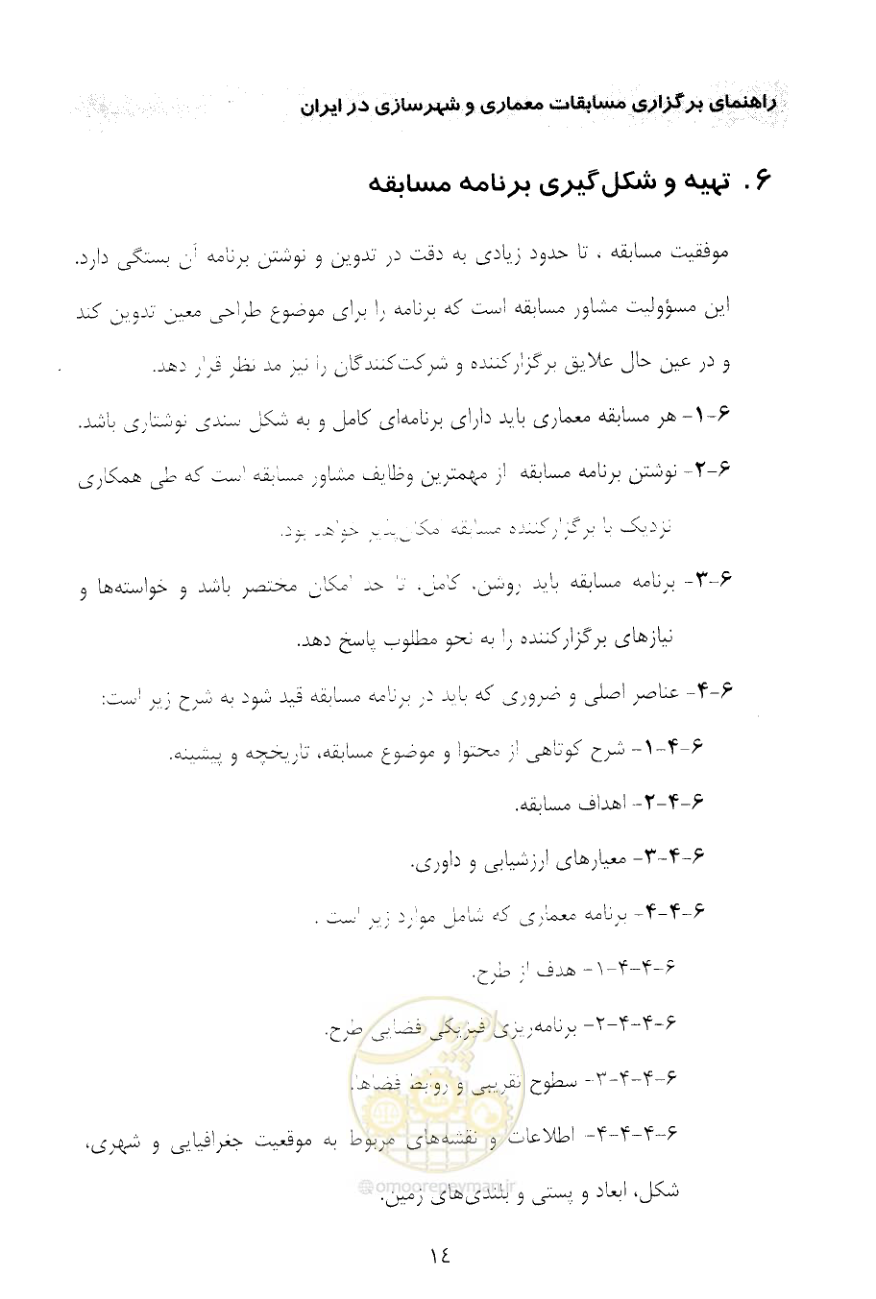 راهنمای برگزاری مسابقات معماری و شهرسازی در ایران
۶. تهیه و شکل‌گیری برنامه مسابقه
موفقیت مسابقه ، تا حدود زیادی به دقت در تدوین و نوشتن برنامه آن بستگی دارد.
این مسؤولیت مشاور مسابقه است که برنامه را برای موضوع طراحی معین تدوین کند
و در عین حال علایق برگزارکننده و شرکت‌کنندگان را نیز مد نظر قرار دهد.
۶-۱- هر مسابقه معماری باید دارای برنامه‌ای کامل و به شکل سندی نوشتاری باشد.
۶-۲- نوشتن برنامه مسابقه از مهمترین وظایف مشاور مسابقه است که طی همکاری
نزدیک با برگزارکننده مسابقه امکان‌پذیر خواهد بود.
۶-۳- برنامه مسابقه باید روشن، کامل، تا حد امکان مختصر باشد و خواسته‌ها و
نیازهای برگزارکننده را به نحو مطلوب پاسخ دهد.
۶-۴- عناصر اصلی و ضروری که باید در برنامه مسابقه قید شود به شرح زیر است:
۶-۴-۱- شرح کوتاهی از محتوا و موضوع مسابقه، تاریخچه و پیشینه.
۶-۴-۲- اهداف مسابقه.
۶-۴-۳- معیارهای ارزشیابی و داوری.
۶-۴-۴- برنامه معماری که شامل موارد زیر است .
۶-۴-۴-۱- هدف از طرح.
۶-۴-۴-۲- برنامه‌ریزی فیزیکی فضایی طرح.
۶-۴-۴-۳- سطوح تقریبی و روابط فضاها.
۶-۴-۴-۴- اطلاعات و نقشه‌های مربوط به موقعیت جغرافیایی و شهری،
شکل، ابعاد و پستی و بلندی‌های زمین.
@omoorepeyman.ir
١٤